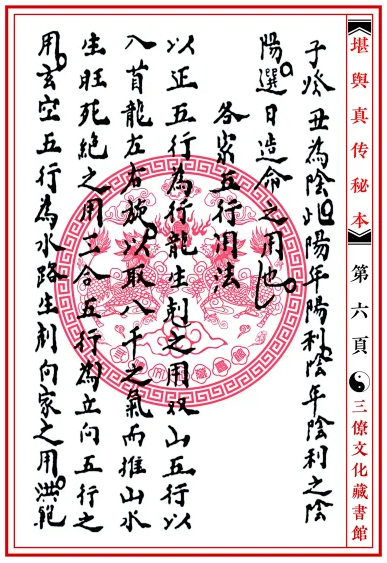 堪輿真传秘本
第六頁
三僚文化藏書館
子癸丑為陰此陽年陽利陰年陰利之陰
陽選日造命之用也
各家五行用法
以正五行為行龍生剋之用双山五行以
入首龍左右旋以取八干之氣而推山水
生旺死絶之用三合五行為立向五行之
用玄空五行為水路生剋向家之用洪範